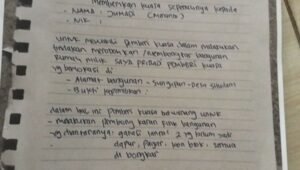 memberikan kuasa sepenuhnya kepada
- NAMA : JUMADI
- NIK :
untuk mewakili pemberi kuasa dalam melakukan
tindakan merobohkan / membongkar bangunan
rumah milik saya pribadi pemberi kuasa
yg berlokasi di
- Alamat bangunan - - Desa
- Bukti kepemilikan :
dalam hal ini pemberi kuasa berwenang untuk
- melakukan pembongkaran fisik bangunan
yg diantaranya : garasi lantai 2 yg belum jadi
dapur, pagar, semua
di bongkar